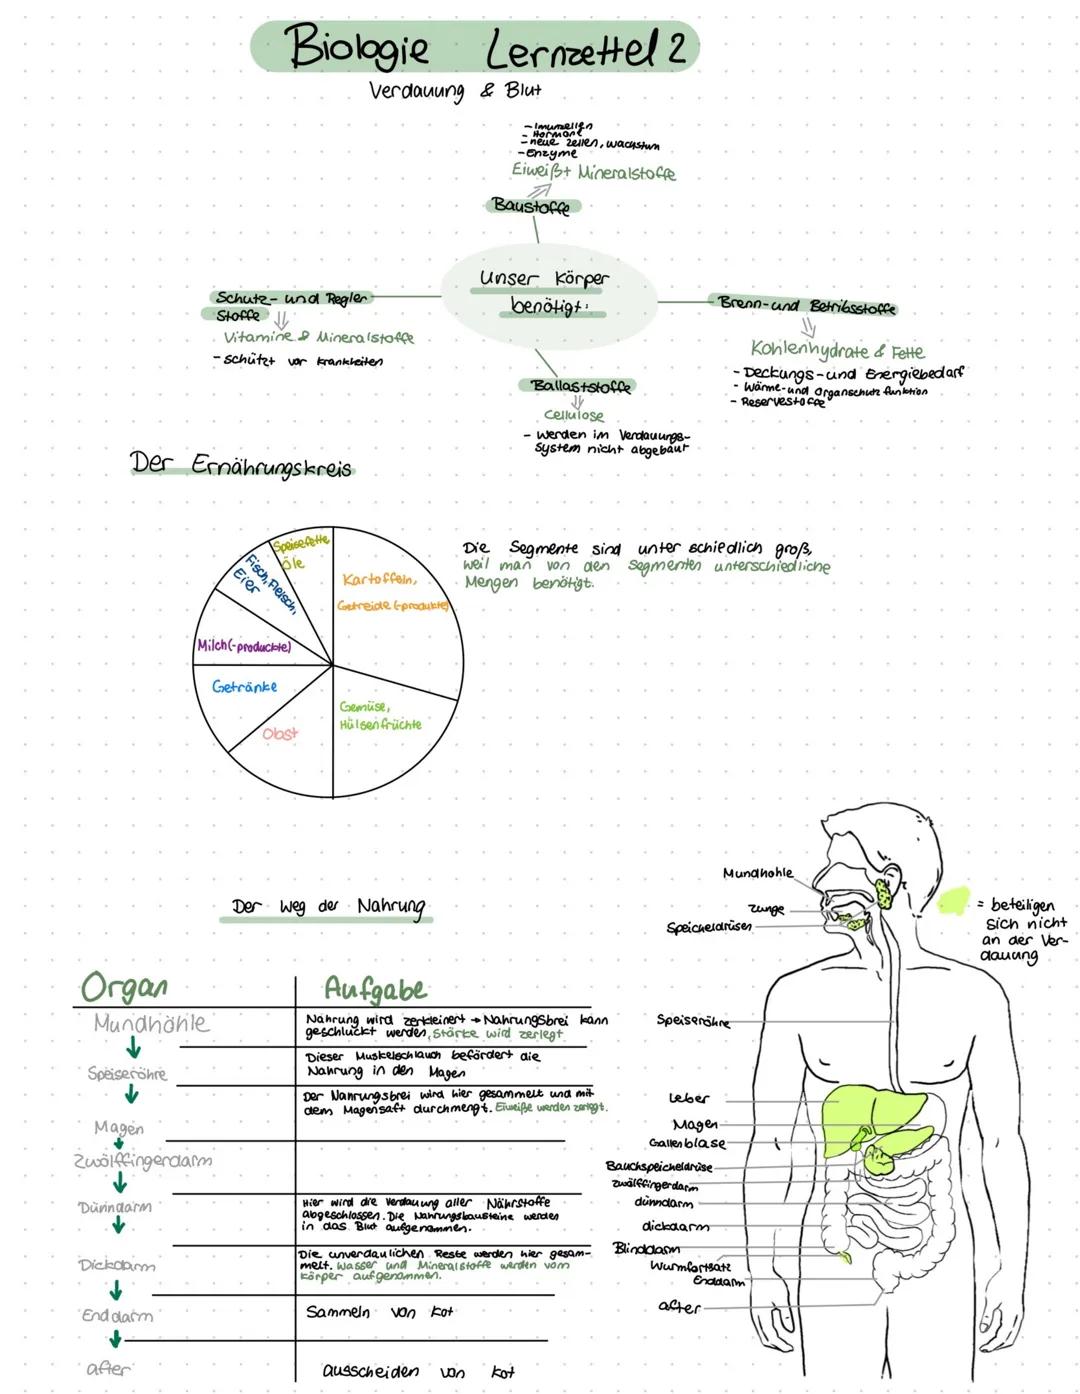 Biologie Lernzettel 2
Verdauung & Blut
- Imunzellen
- Hormone
- neue Zellen, Wachstum
- Enzyme
Eiweiß + Mineralstoffe
Baustoffe
Unser Körper
benötigt:
Schutz- und Regler
Stoffe
Vitamine & Mineralstoffe
- schützt vor Krankheiten
Brenn- und Betribsstoffe
Kohlenhydrate & Fette
- Deckungs- und Energiebedarf
- Wärme- und Organschutz funktion
- Reservestoffe
Ballaststoffe
Cellulose
- werden im Verdauungs-
system nicht abgebaut
Der Ernährungskreis
Speisefette
Öle
Fisch, Fleisch,
Eier
Milch(-produckte)
Getränke
Obst
Kartoffeln,
Getreide (-produkte)
Gemüse,
Hülsenfrüchte
Die Segmente sind unter schiedlich groß,
weil man von den Segmenten unterschiedliche
Mengen benötigt.
Der Weg der Nahrung
Organ
Aufgabe
Mundhöhle
Nahrung wird zerkleinert → Nahrungsbrei kann
geschluckt werden, Stärke wird zerlegt
Speiseröhre
Dieser Muskelschlauch befördert die
Nahrung in den Magen
Magen
Der Nahrungsbrei wird hier gesammelt und mit
dem Magensaft durchmengt. Eiweiße werden zerlegt.
Zwölffingerdarm
Dünndarm
Hier wird die Verdauung aller Nährstoffe
abgeschlossen. Die Nahrungsbausteine werden
in das Blut aufgenommen.
Dickdarm
Die unverdaulichen Reste werden hier gesam-
melt. Wasser und Mineralstoffe werden vom
Körper aufgenommen.
Enddarm
Sammeln von Kot
after
ausscheiden von Kot
Mundhohle
Zunge
Speicheldrüsen
= beteiligen
sich nicht
an der Ver-
dauung
Speiseröhre
Leber
Magen
Gallenblase
Bauchspeicheldrüse
zwölffingerdarm
dünndarm
dickdarm
Blinddarm
Wurmfortsatz
Enddarm
after